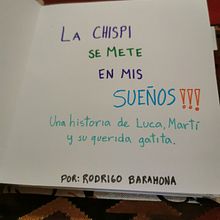 LA CHISPI
SE METE
EN MIS
SUEÑOS!!!
Una historia de Luca, Martí
y su querida gatita.
POR: RODRIGO BARAHONA